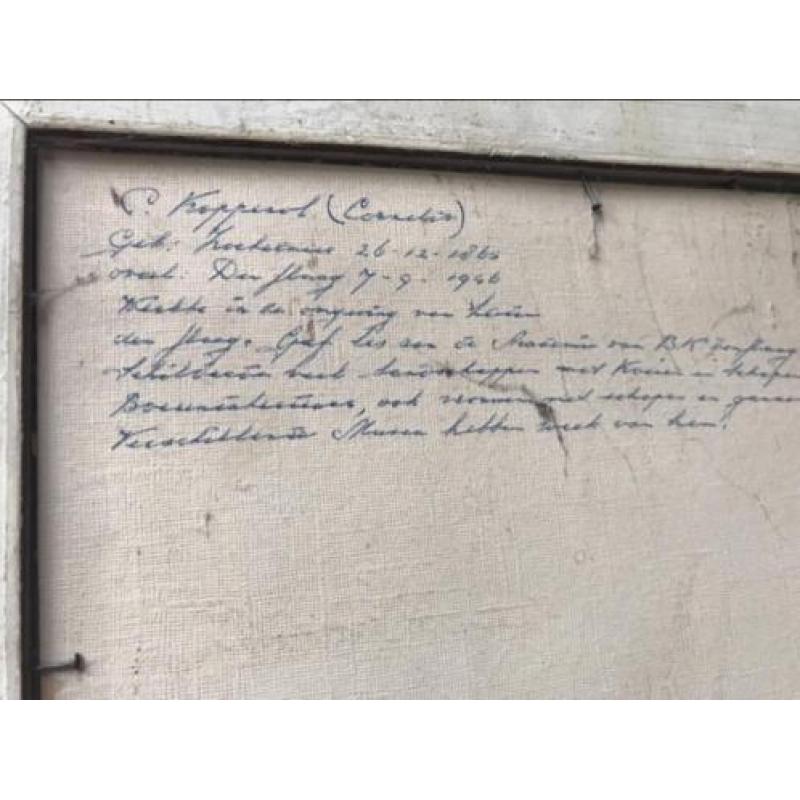 C. Koppenol (Cornelis)
Geb: Zoeterwoude 26-12-1865
overl: Den Haag 7-9-1946
Werkte in de omgeving van Leiden
den Haag. Gaf les aan de Academie van BK den Haag
Schilderde veel landschappen met Koeien en schapen
Boereninterieurs, ook vrouwen met schapen en ganzen
Verschillende Musea hebben werk van hem.